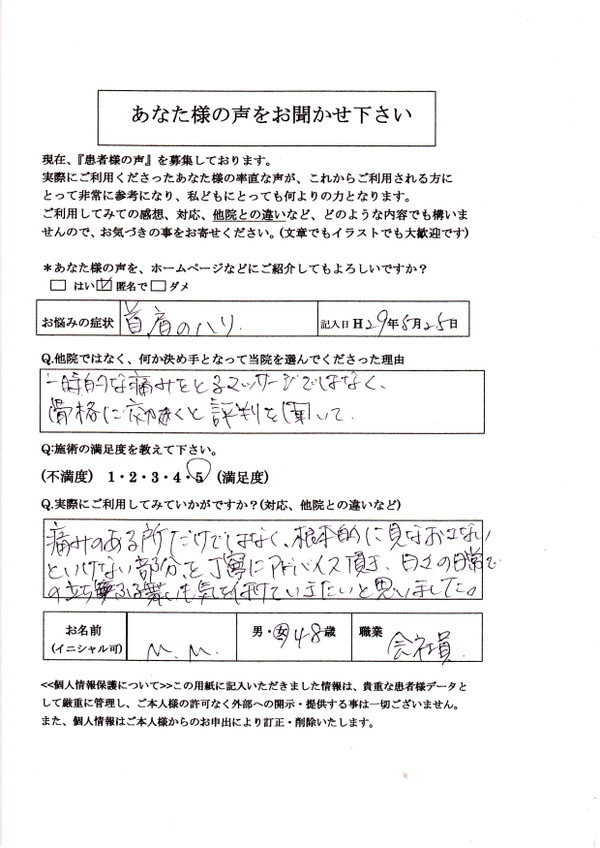 あなた様の声をお聞かせ下さい
現在、『患者様の声』を募集しております。
実際にご利用くださったあなた様の率直な声が、これからご利用される方に
とって非常に参考になり、私どもにとっても何よりの力となります。
ご利用してみての感想、対応、他院との違いなど、どのような内容でも構いま
せんので、お気づきの事をお寄せください。(文章でもイラストでも大歓迎です)
＊あなた様の声を、ホームページなどにご紹介してもよろしいですか？
はい 匿名で ダメ
お悩みの症状 首肩のハリ 記入日 H29年5月25日
Q.他院ではなく、何か決め手となって当院を選んでくださった理由
一時的な痛みをとるマッサージではなく、
骨格に効くと評判を聞いて
Q:施術の満足度を教えて下さい。
(不満度) 1・2・3・4・5 (満足度)
Q.実際にご利用してみていかがですか？(対応、他院との違いなど)
痛みのある所だけではなく、根本的に見なおさない
といけない部分を丁寧にアドバイス頂き、日々の日常で
の立ち振る舞いも気を付けていきたいと思いました。
お名前 M.M. 男・女 48歳 職業 会社員
(イニシャル可)
<<個人情報保護について>>この用紙に記入いただきました情報は、貴重な患者様データと
して厳重に管理し、ご本人様の許可なく外部への開示・提供する事は一切ございません。
また、個人情報はご本人様からのお申出により訂正・削除いたします。